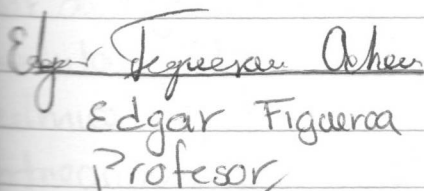 Edgar Figueroa
Edgar Figueroa
Profesor